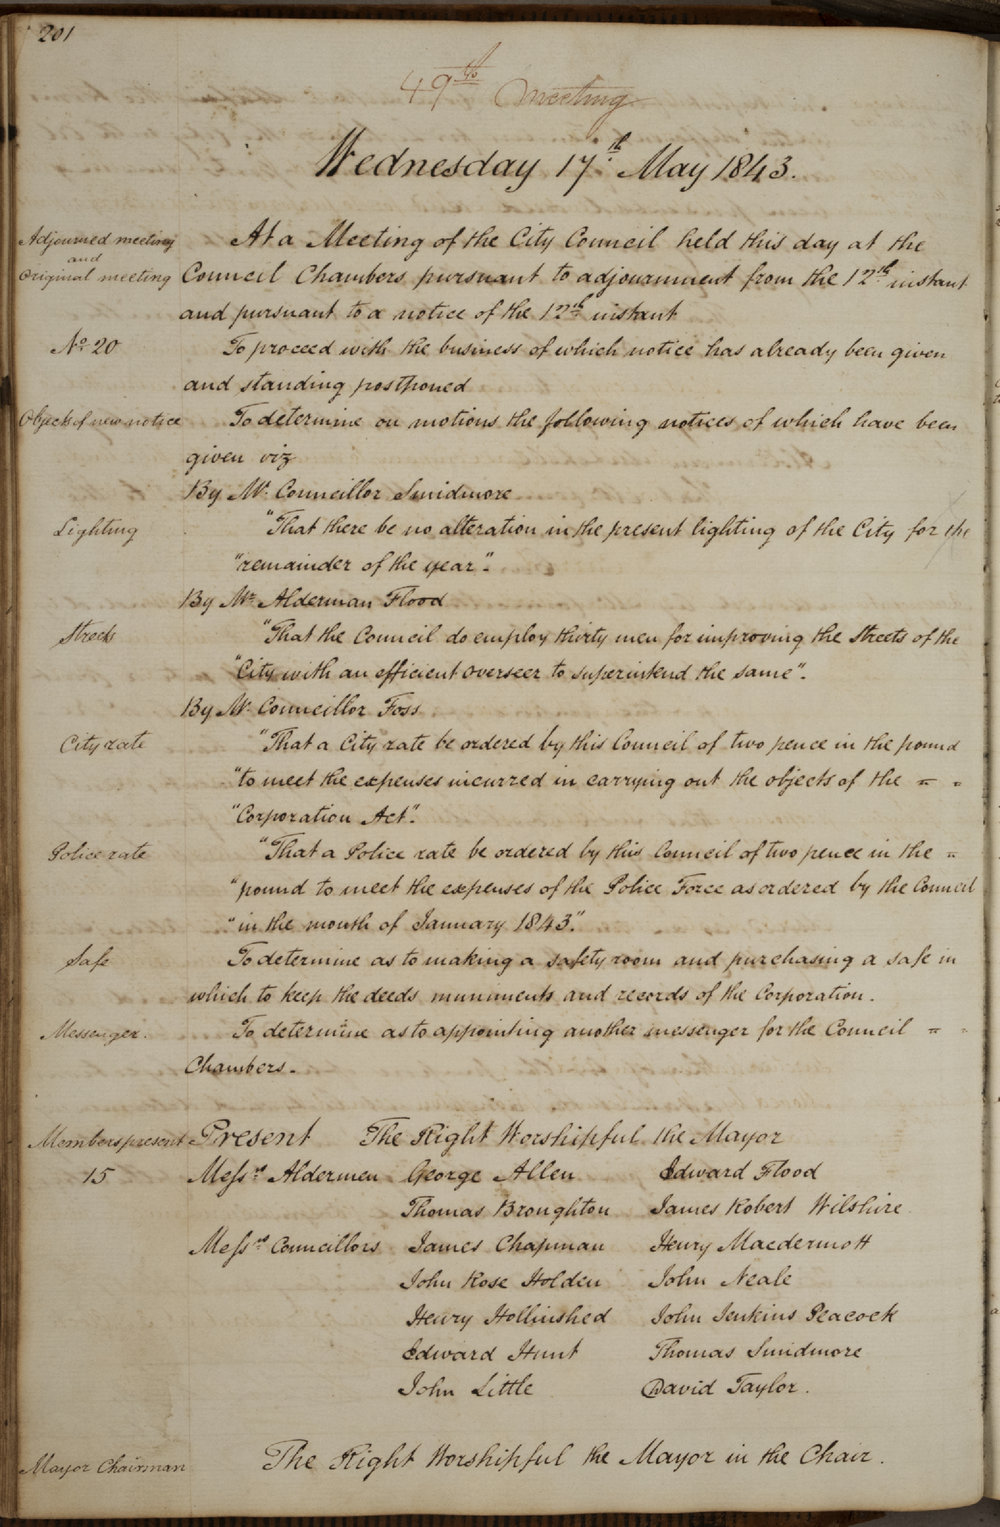 201
49th Meeting
Wednesday 17th May 1843.
Adjourned meeting and Original meeting
At a Meeting of the City Council held this day at the
Council Chambers pursuant to adjournment from the 12th instant
and pursuant to a notice of the 12th instant
No. 20
To proceed with the business of which notice has already been given
and standing postponed
Objects of new notice
To determine on motions the following notices of which have been
given viz
By Mr. Councillor Smidmore
Lighting
"That there be no alteration in the present lighting of the City for the
"remainder of the year".
By Mr. Alderman Flood
Streets
"That the Council do employ thirty men for improving the Streets of the
"City with an efficient Overseer to superintend the same".
By Mr. Councillor Foss
City rate
"That a City rate be ordered by this Council of two pence in the pound
"to meet the expenses incurred in carrying out the objects of the = =
"Corporation Act".
Police rate
"That a Police rate be ordered by this Council of two pence in the =
"pound to meet the expenses of the Police Force as ordered by the Council
"in the month of January 1843".
Safe
To determine as to making a safety room and purchasing a safe in
which to keep the deeds muniments and records of the Corporation.
Messenger.
To determine as to appointing another messenger for the Council = =
Chambers.
Members present
15
Present The Right Worshipful the Mayor
Messrs Aldermen George Allen Edward Flood
Thomas Broughton James Robert Wilshire
Messrs Councillors James Chapman Henry Macdermott
John Rose Holden John Neale
Henry Hollinshed John Jenkins Peacock
Edward Hunt Thomas Smidmore
John Little David Taylor.
Mayor Chairman
The Right Worshipful the Mayor in the Chair.